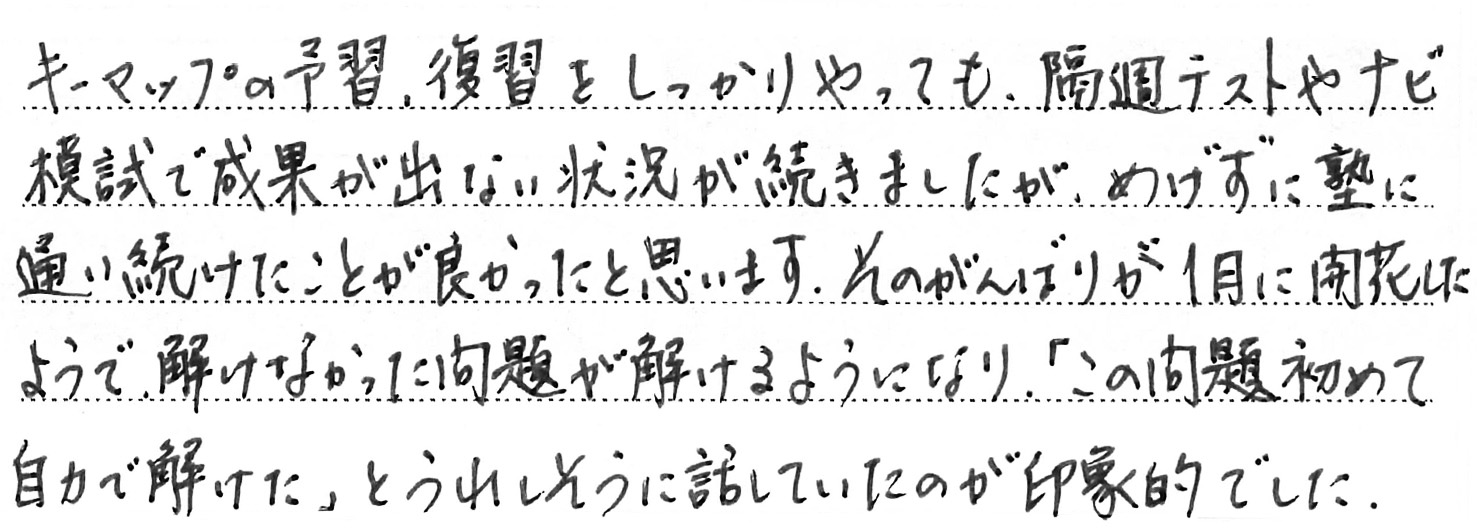 キーマップの予習、復習をしっかりやっても、隔週テストやナビ
模試で成果が出ない状況が続きましたが、めげずに塾に
通い続けたことが良かったと思います。そのがんばりが1月に開花した
ようで、解けなかった問題が解けるようになり、「この問題初めて
自力で解けた」とうれしそうに話していたのが印象的でした。